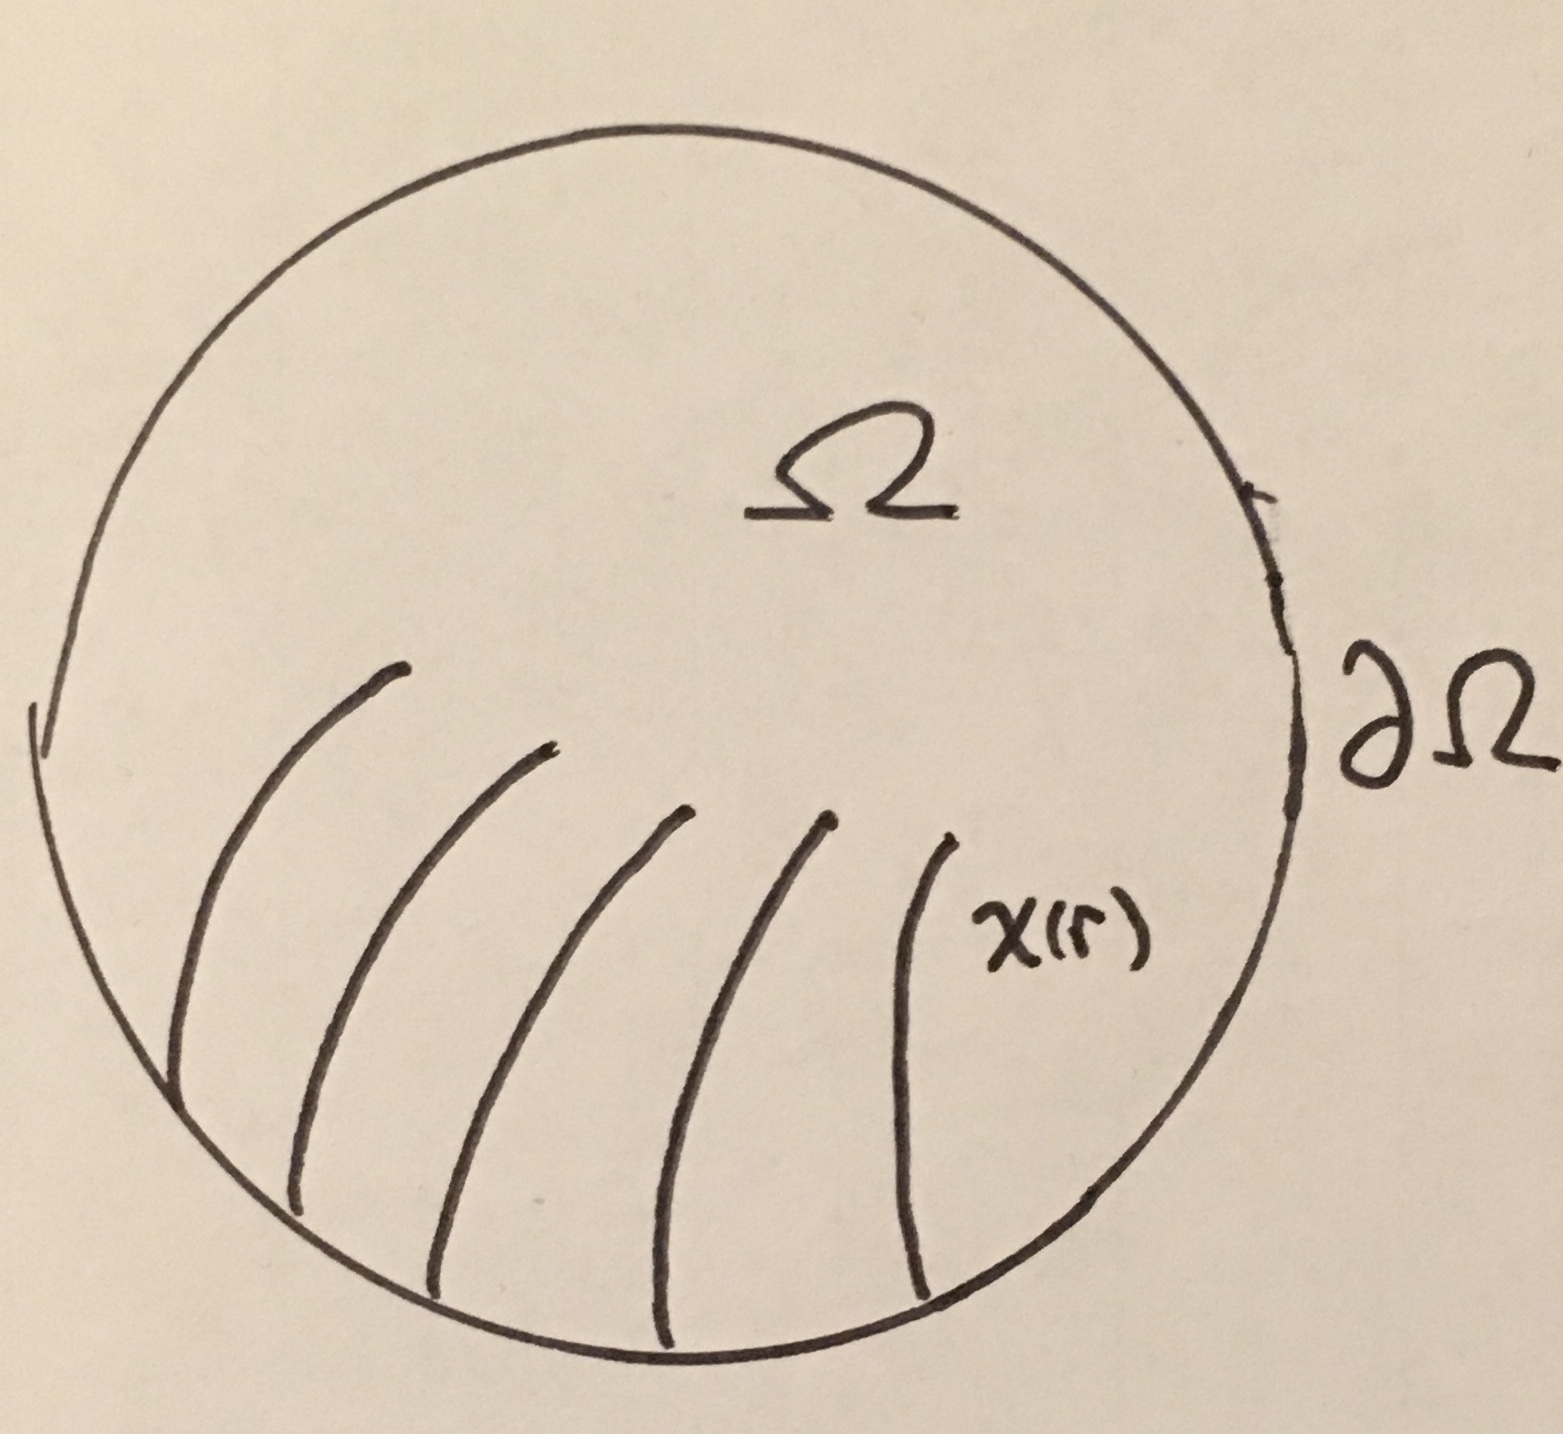 Ω
∂Ω
x(r)